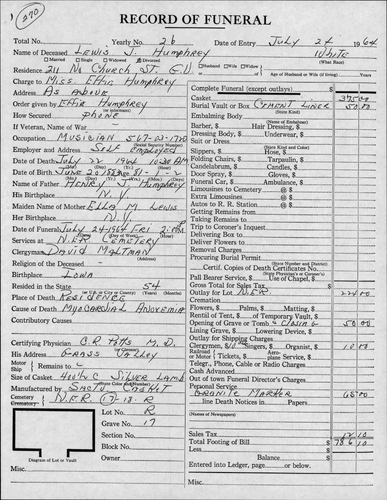 270
RECORD OF FUNERAL
Total No. Yearly No. 26 Date of Entry July 24 1964
Name of Deceased Lewis J. Humphrey White
(What Race)
Married Single Widowed Divorced Husband Wife Widow
Residence 211 No Church St. G.V.
Age of Husband or Wife (if living) Years
Charge to Miss. Effie Humphrey
Address As Above
Order given by Effie Humphrey
How Secured phone
If Veteran, Name of War
Occupation Musician
(Social Security Number)
Employer and Address Self Employed
Date of Death July 22 1964 10:30 AM
Date of Birth June 20
Name of Father Henry J. Humphrey
His Birthplace N.Y.
Maiden Name of Mother Ella M. Lewis
Her Birthplace N.Y.
Date of Funeral July 24-1964 Fri 2: PM
Services at N.E.R. Cemetery
Clergyman David Maltman
Religion of the Deceased
Birthplace Iowa
Resided in the State 54
Place of Death Residence
Cause of Death Myocardial
Contributory Causes
Certifying Physician C.R. Potts M.D.
His Address Grass Valley
Motor Ship Remains to
Size of Casket Silver Lamb
Manufactured by Sacto Casket
Cemetery Crematory N.E.R. 17-13-R
Lot No. R
Grave No. 17
Section No.
Block No.
Owner
Diagram of Lot or Vault
Misc.
Complete Funeral (except outlays) $
Casket
Burial Vault or Box Cement Liner 50 00
(State Kind)
Embalming Body
(Name of Embalmer)
Barber, $ Hair Dressing, $
Dressing Body, $ Underwear, $
Suit or Dress
(State Kind and Color)
Slippers, $ Hose, $
Folding Chairs, $ Tarpaulin, $
Candelabrum, $ Candles, $
Door Spray, $ Gloves, $
Funeral Car, $ Ambulance, $
Limousines to Cemetery @ $
Extra Limousines @ $
Autos to R. R. Station @ $
Getting Remains from
Taking Remains to
Trip to Coroner's Inquest
Delivering Box to
Deliver Flowers to
Removal Charges
Procuring Burial Permit
(State Number and District)
Certif. Copies of Death Certificates No.
Pall Bearer Service, $ Use of Chapel, $
Gross Total for Sales Tax $
Outlay for Lot N.E.R. 224 00
Cremation
Flowers, $ Palms, $ Matting, $
Rental of Tent, $ of Temporary Vault, $
Opening of Grave or Tomb & Closing 50 00
Lining Grave, $ Lowering Device, $
Outlay for Shipping Charges
Clergyman, $ Singers, $ Organist, $ 10 00
Railroad or Motor Tickets, $ Aeroplane Service, $
Telegr., Phone, Cable or Radio Charges
Cash Advanced
Out of town Funeral Director's Charges
Personal Service
Granite Marker 65 00
line Death Notices in Papers $
(Names of Newspapers)
Sales Tax $
Total Footing of Bill $
Less $
Balance $
Entered into Ledger, page or below.
Misc.